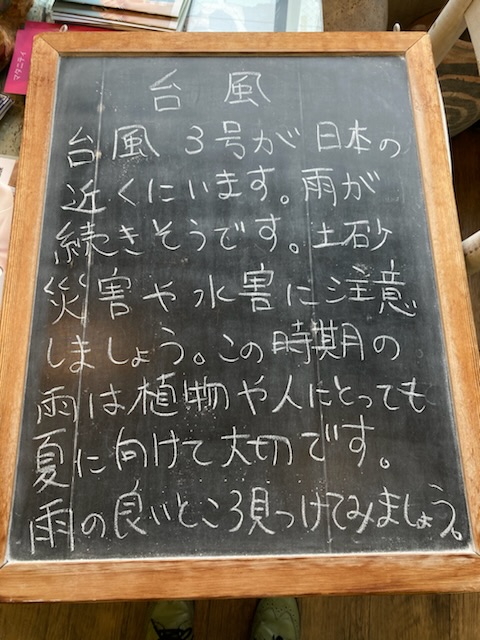 マタニティ
台風
台風3号が日本の
近くにいます。雨が
続きそうです。土砂
災害や水害に注意
しましょう。この時期の
雨は植物や人にとっても
夏に向けて大切です。
雨の良いところ見つけてみましょう。